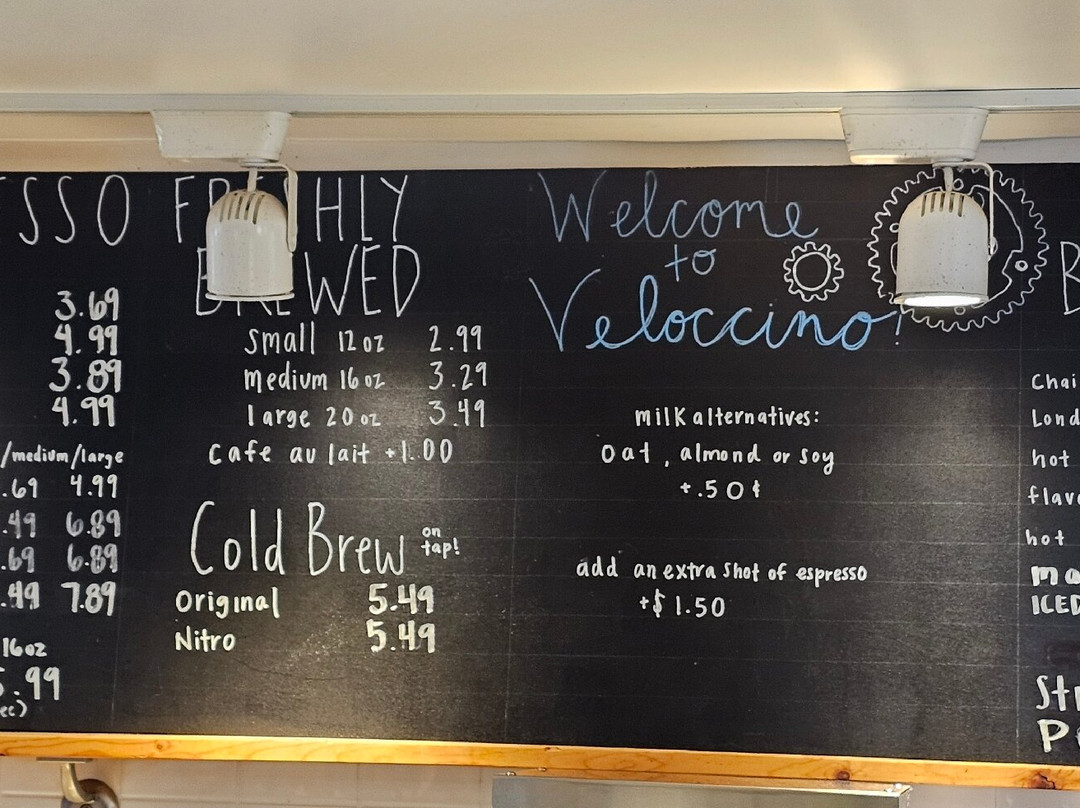 3.69
4.99
3.89
4.99
/medium/large
.69 4.99
.49 6.89
.69 6.89
.49 7.89
16oz
.99
BREWED
small 12oz 2.99
medium 16oz 3.29
large 20oz 3.49
cafe au lait +1.00
Cold Brew on tap!
Original 5.49
Nitro 5.49
Welcome
to
Veloccino!
milk alternatives:
oat, almond or soy
+.50¢
add an extra shot of espresso
+$1.50
Chai
hot
hot
ICED